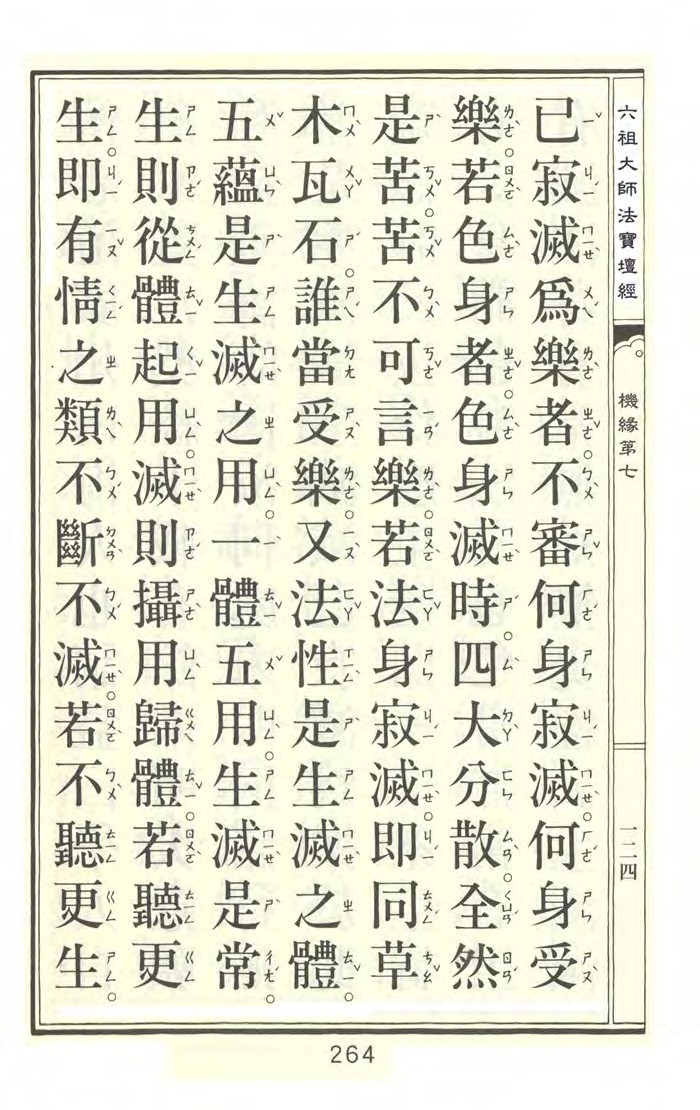 六祖大師法寶壇經
機緣第七
一二四
已寂滅爲樂者。不審何身寂滅。何身受
樂。若色身者。色身滅時。四大分散。全然
是苦。苦不可言樂若法身寂滅。即同草
木瓦石。誰當受樂。又法性是生滅之體。
五蘊是生滅之用。一體五用。生滅是常。
生則從體起用。滅則攝用歸體。若聽更
生。即有情之類不斷不滅。若不聽更生。
264